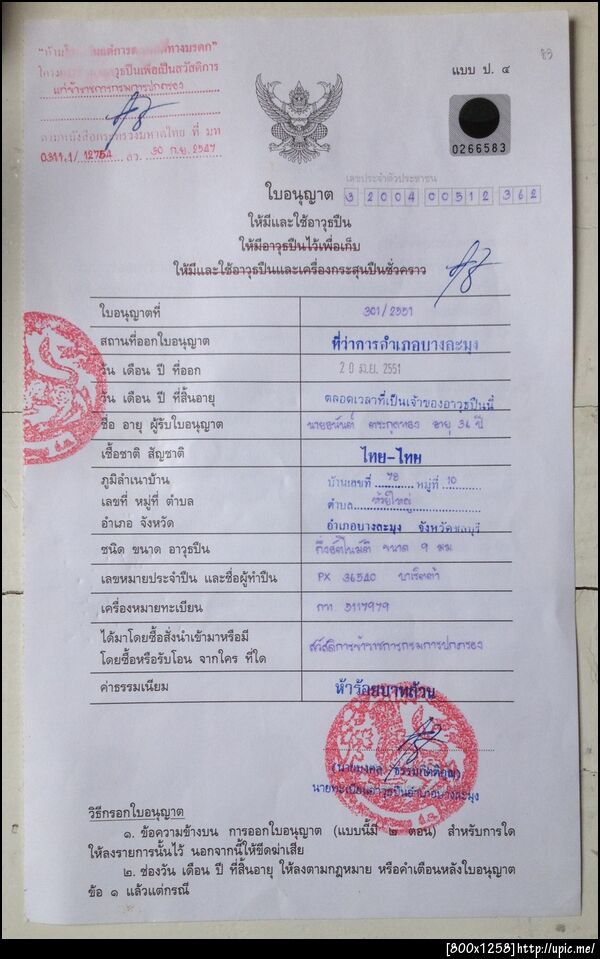 แบบ ป. ๔
83
0266583
แก่ข้าราชการกรมการปกครอง
ตามหนังสือกระทรวงมหาดไทย ที่ มท
0311.1/ 12754 ลว. 30 ก.ย. 2547
เลขประจำตัวประชาชน
3 2004 00512 362
ใบอนุญาต
ให้มีและใช้อาวุธปืน
ให้มีอาวุธปืนไว้เพื่อเก็บ
ให้มีและใช้อาวุธปืนและเครื่องกระสุนปืนชั่วคราว
ใบอนุญาตที่ 301/2551
สถานที่ออกใบอนุญาต ที่ว่าการอำเภอบางละมุง
วัน เดือน ปี ที่ออก 20 2551
วัน เดือน ปี ที่สิ้นอายุ ตลอดเวลาที่เป็นเจ้าของอาวุธปืนนี้
ชื่อ อายุ ผู้รับใบอนุญาต อายุ 36 ปี
เชื้อชาติ สัญชาติ ไทย-ไทย
ภูมิลำเนาบ้าน บ้านเลขที่ 78 หมู่ที่ 10
เลขที่ หมู่ที่ ตำบล ตำบล ห้วยใหญ่
อำเภอ จังหวัด อำเภอบางละมุง จังหวัดชลบุรี
ชนิด ขนาด อาวุธปืน กึ่งอัตโนมัติ ขนาด 9 มม
เลขหมายประจำปืน และชื่อผู้ทำปืน PX 36540 บาเร็ตต้า
เครื่องหมายทะเบียน กท 5117979
ได้มาโดยซื้อสั่งนำเข้ามาหรือมี
โดยซื้อหรือรับโอน จากใคร ที่ใด สวัสดิการข้าราชการกรมการปกครอง
ค่าธรรมเนียม ห้าร้อยบาทถ้วน
นายทะเบียนอาวุธปืนอำเภอบางละมุง
วิธีกรอกใบอนุญาต
๑. ข้อความข้างบน การออกใบอนุญาต (แบบนี้มี ๒ ตอน) สำหรับการใด
ให้ลงรายการนั้นไว้ นอกจากนี้ให้ขีดฆ่าเสีย
๒. ช่องวัน เดือน ปี ที่สิ้นอายุ ให้ลงตามกฎหมาย หรือคำเตือนหลังใบอนุญาต
ข้อ ๑ แล้วแต่กรณี
[800x1258]http://upic.me/